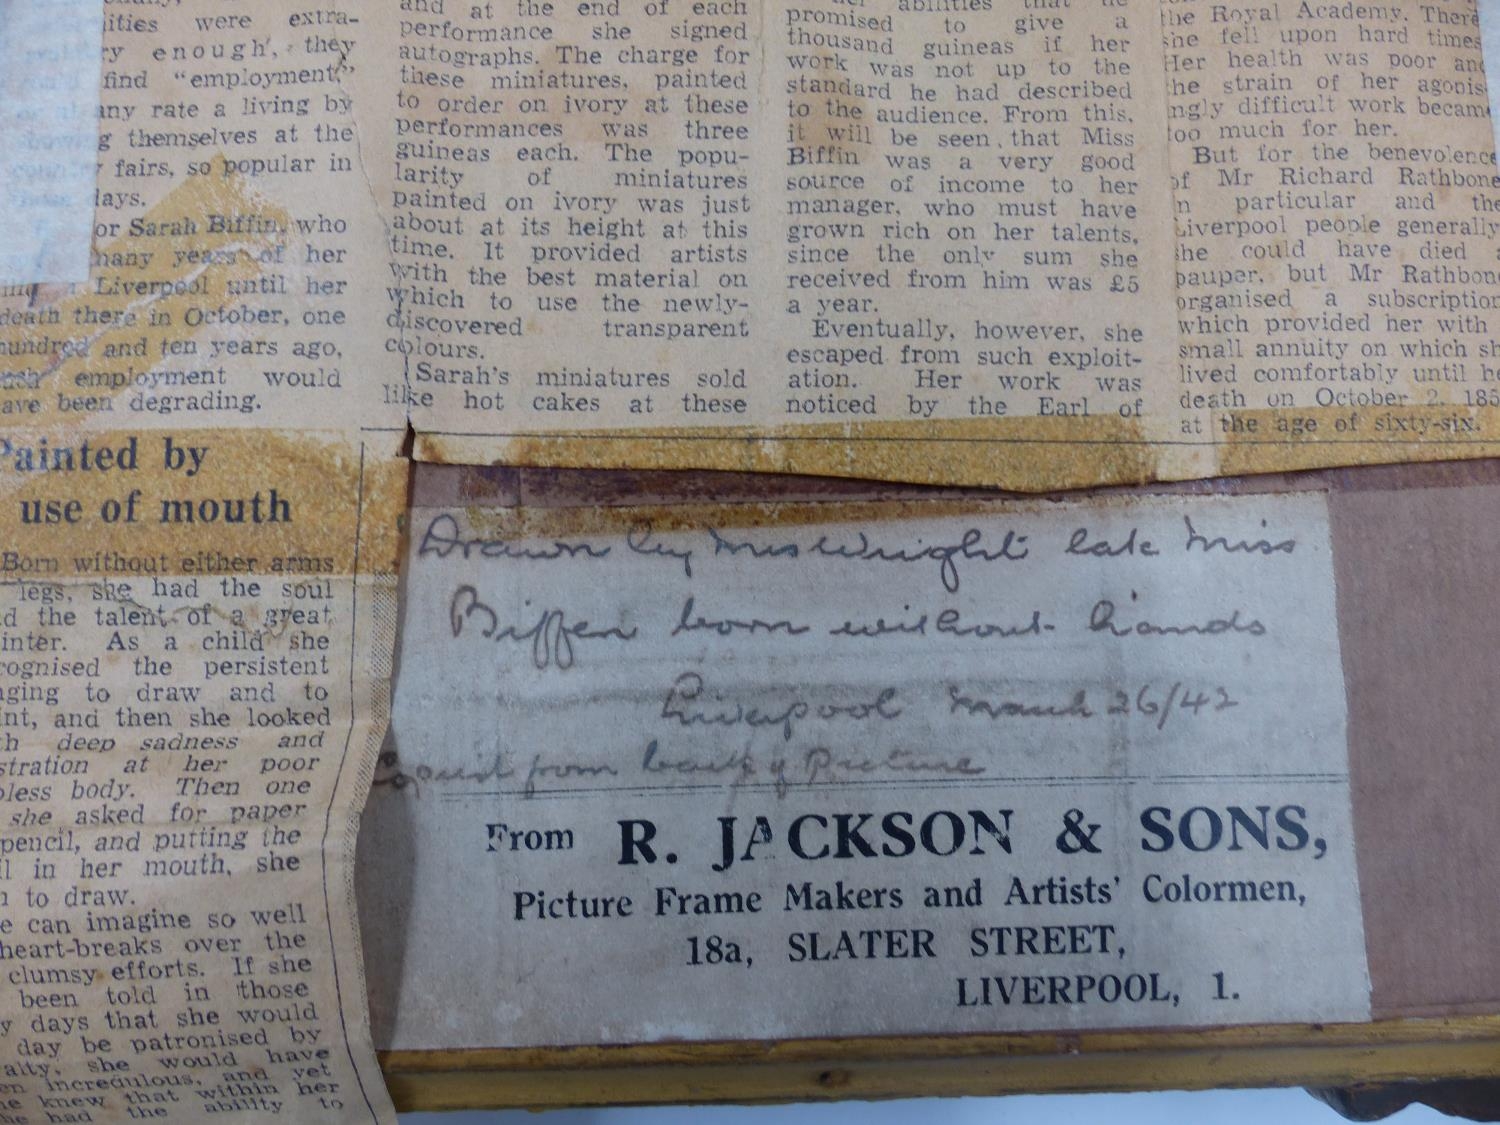 ities were extra-
enough, they
find "employment"
any rate a living by
themselves at the
fairs, so popular in
days.
or Sarah Biffin, who
many years of her
Liverpool until her
death there in October, one
hundred and ten years ago,
employment would
have been degrading.
Painted by
use of mouth
Born without either arms
legs, she had the soul
the talent of a great
inter. As a child she
cognised the persistent
nging to draw and to
int, and then she looked
th deep sadness and
stration at her poor
pless body. Then one
she asked for paper
pencil, and putting the
il in her mouth, she
n to draw.
e can imagine so well
heart-breaks over the
clumsy efforts. If she
been told in those
y days that she would
day be patronised by
alty, she would have
en incredulous, and yet
he knew that within her
he had the ability to
and at the end of each
performance she signed
autographs. The charge for
these miniatures, painted
to order on ivory at these
performances was three
guineas each. The popu-
larity of miniatures
painted on ivory was just
about at its height at this
time. It provided artists
with the best material on
which to use the newly-
discovered transparent
colours.
Sarah's miniatures sold
like hot cakes at these
abilities that he
promised to give a
thousand guineas if her
work was not up to the
standard he had described
to the audience. From this,
it will be seen that Miss
Biffin was a very good
source of income to her
manager, who must have
grown rich on her talents,
since the only sum she
received from him was £5
a year.
Eventually, however, she
escaped from such exploit-
ation. Her work was
noticed by the Earl of
the Royal Academy. There
she fell upon hard times.
Her health was poor and
the strain of her agonis-
ingly difficult work became
too much for her.
But for the benevolence
of Mr Richard Rathbone
in particular and the
Liverpool people generally
she could have died a
pauper, but Mr Rathbone
organised a subscription
which provided her with
small annuity on which she
lived comfortably until he
death on October 2, 185
at the age of sixty-six.
Drawn by Mrs Wright late Miss
Biffen born without hands
Liverpool March 26/42
Copied from back of Picture
From R. JACKSON & SONS,
Picture Frame Makers and Artists' Colormen,
18a, SLATER STREET,
LIVERPOOL, 1.